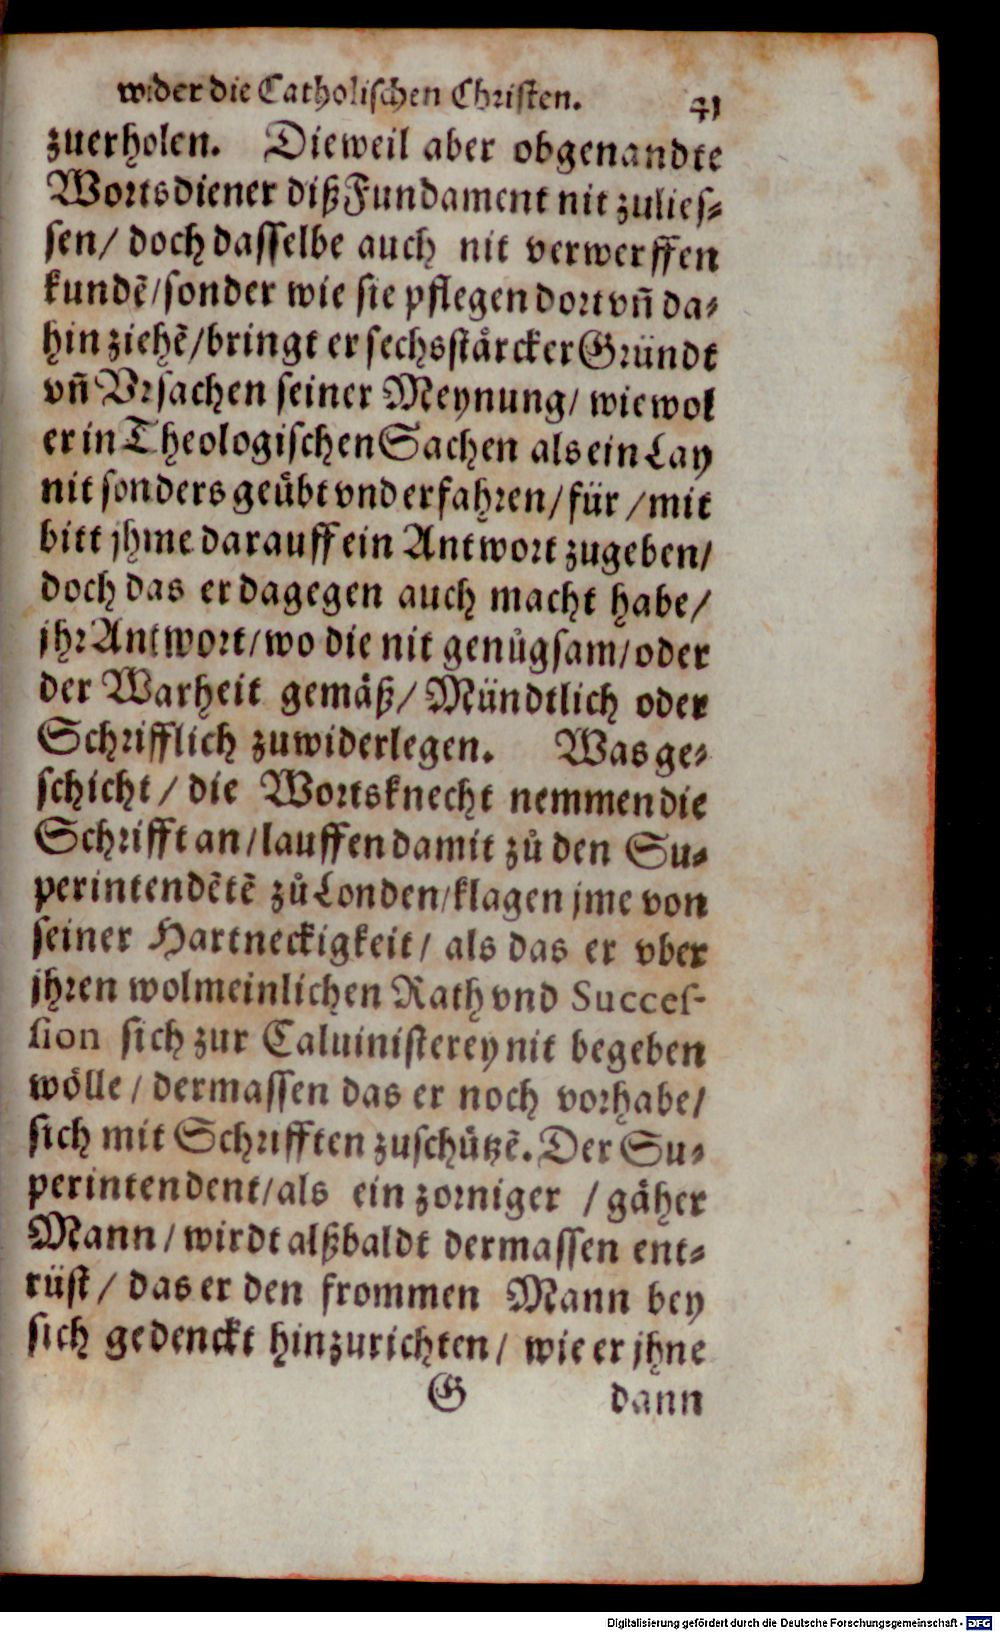 wider die Catholischen Christen. 41
zuerholen. Dieweil aber obgenandte
Wortsdiener diß Fundament nit zulies⸗
sen/ doch dasselbe auch nit verwerffen
kundẽ/ sonder wie sie pflegen dort vñ da⸗
hin ziehẽ/ bringt er sechs stärcker Gründt
vñ Vrsachen seiner Meynung/ wiewol
er in Theologischen Sachen als ein Lay
nit sonders geübt vnd erfahren/ für / mit
bitt jhme darauff ein Antwort zugeben/
doch das er dagegen auch macht habe/
jhr Antwort/ wo die nit genůgsam/ oder
der Warheit gemäß/ Mündtlich oder
Schrifflich zuwiderlegen. Was ge⸗
schicht / die Wortsknecht nemmen die
Schrifft an/ lauffen damit zů den Su⸗
perintendẽtẽ zů Londen/ klagen jme von
seiner Hartneckigkeit/ als das er vber
jhren wolmeinlichen Rath vnd Succes-
sion sich zur Caluinisterey nit begeben
wölle / dermassen das er noch vorhabe/
sich mit Schrifften zuschützẽ. Der Su⸗
perintendent/ als ein zorniger / gäher
Mann / wirdt alßbaldt dermassen ent⸗
rüst / das er den frommen Mann bey
sich gedenckt hinzurichten/ wie er jhne
G dann
Digitalisierung gefördert durch die Deutsche Forschungsgemeinschaft - DFG